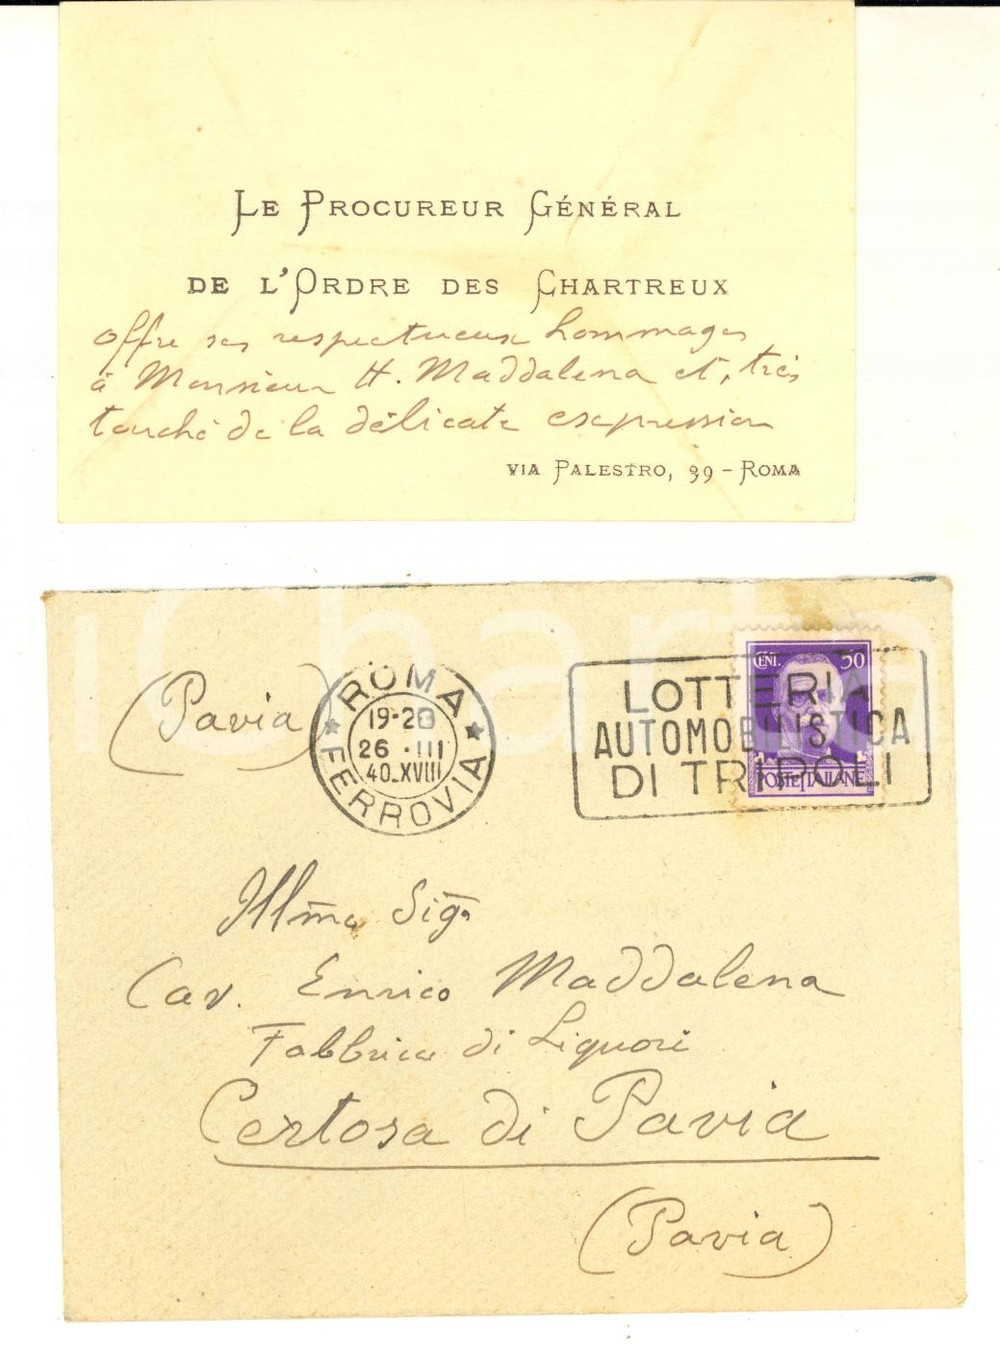 Le Procureur Général
de l'Ordre des Chartreux
offre ses respectueux hommages
à Monsieur H. Maddalena et, très
touché de la délicate expression
Via Palestro, 39 - Roma
(Pavia)
ROMA
19-20
26 · III
40.XVIII
FERROVIA
CENT. 50
LOTTERIA
AUTOMOBILISTICA
DI TRIPOLI
POSTE ITALIANE
Illma Sig.
Cav. Enrico Maddalena
Fabbrica di Liquori
Certosa di Pavia
(Pavia)